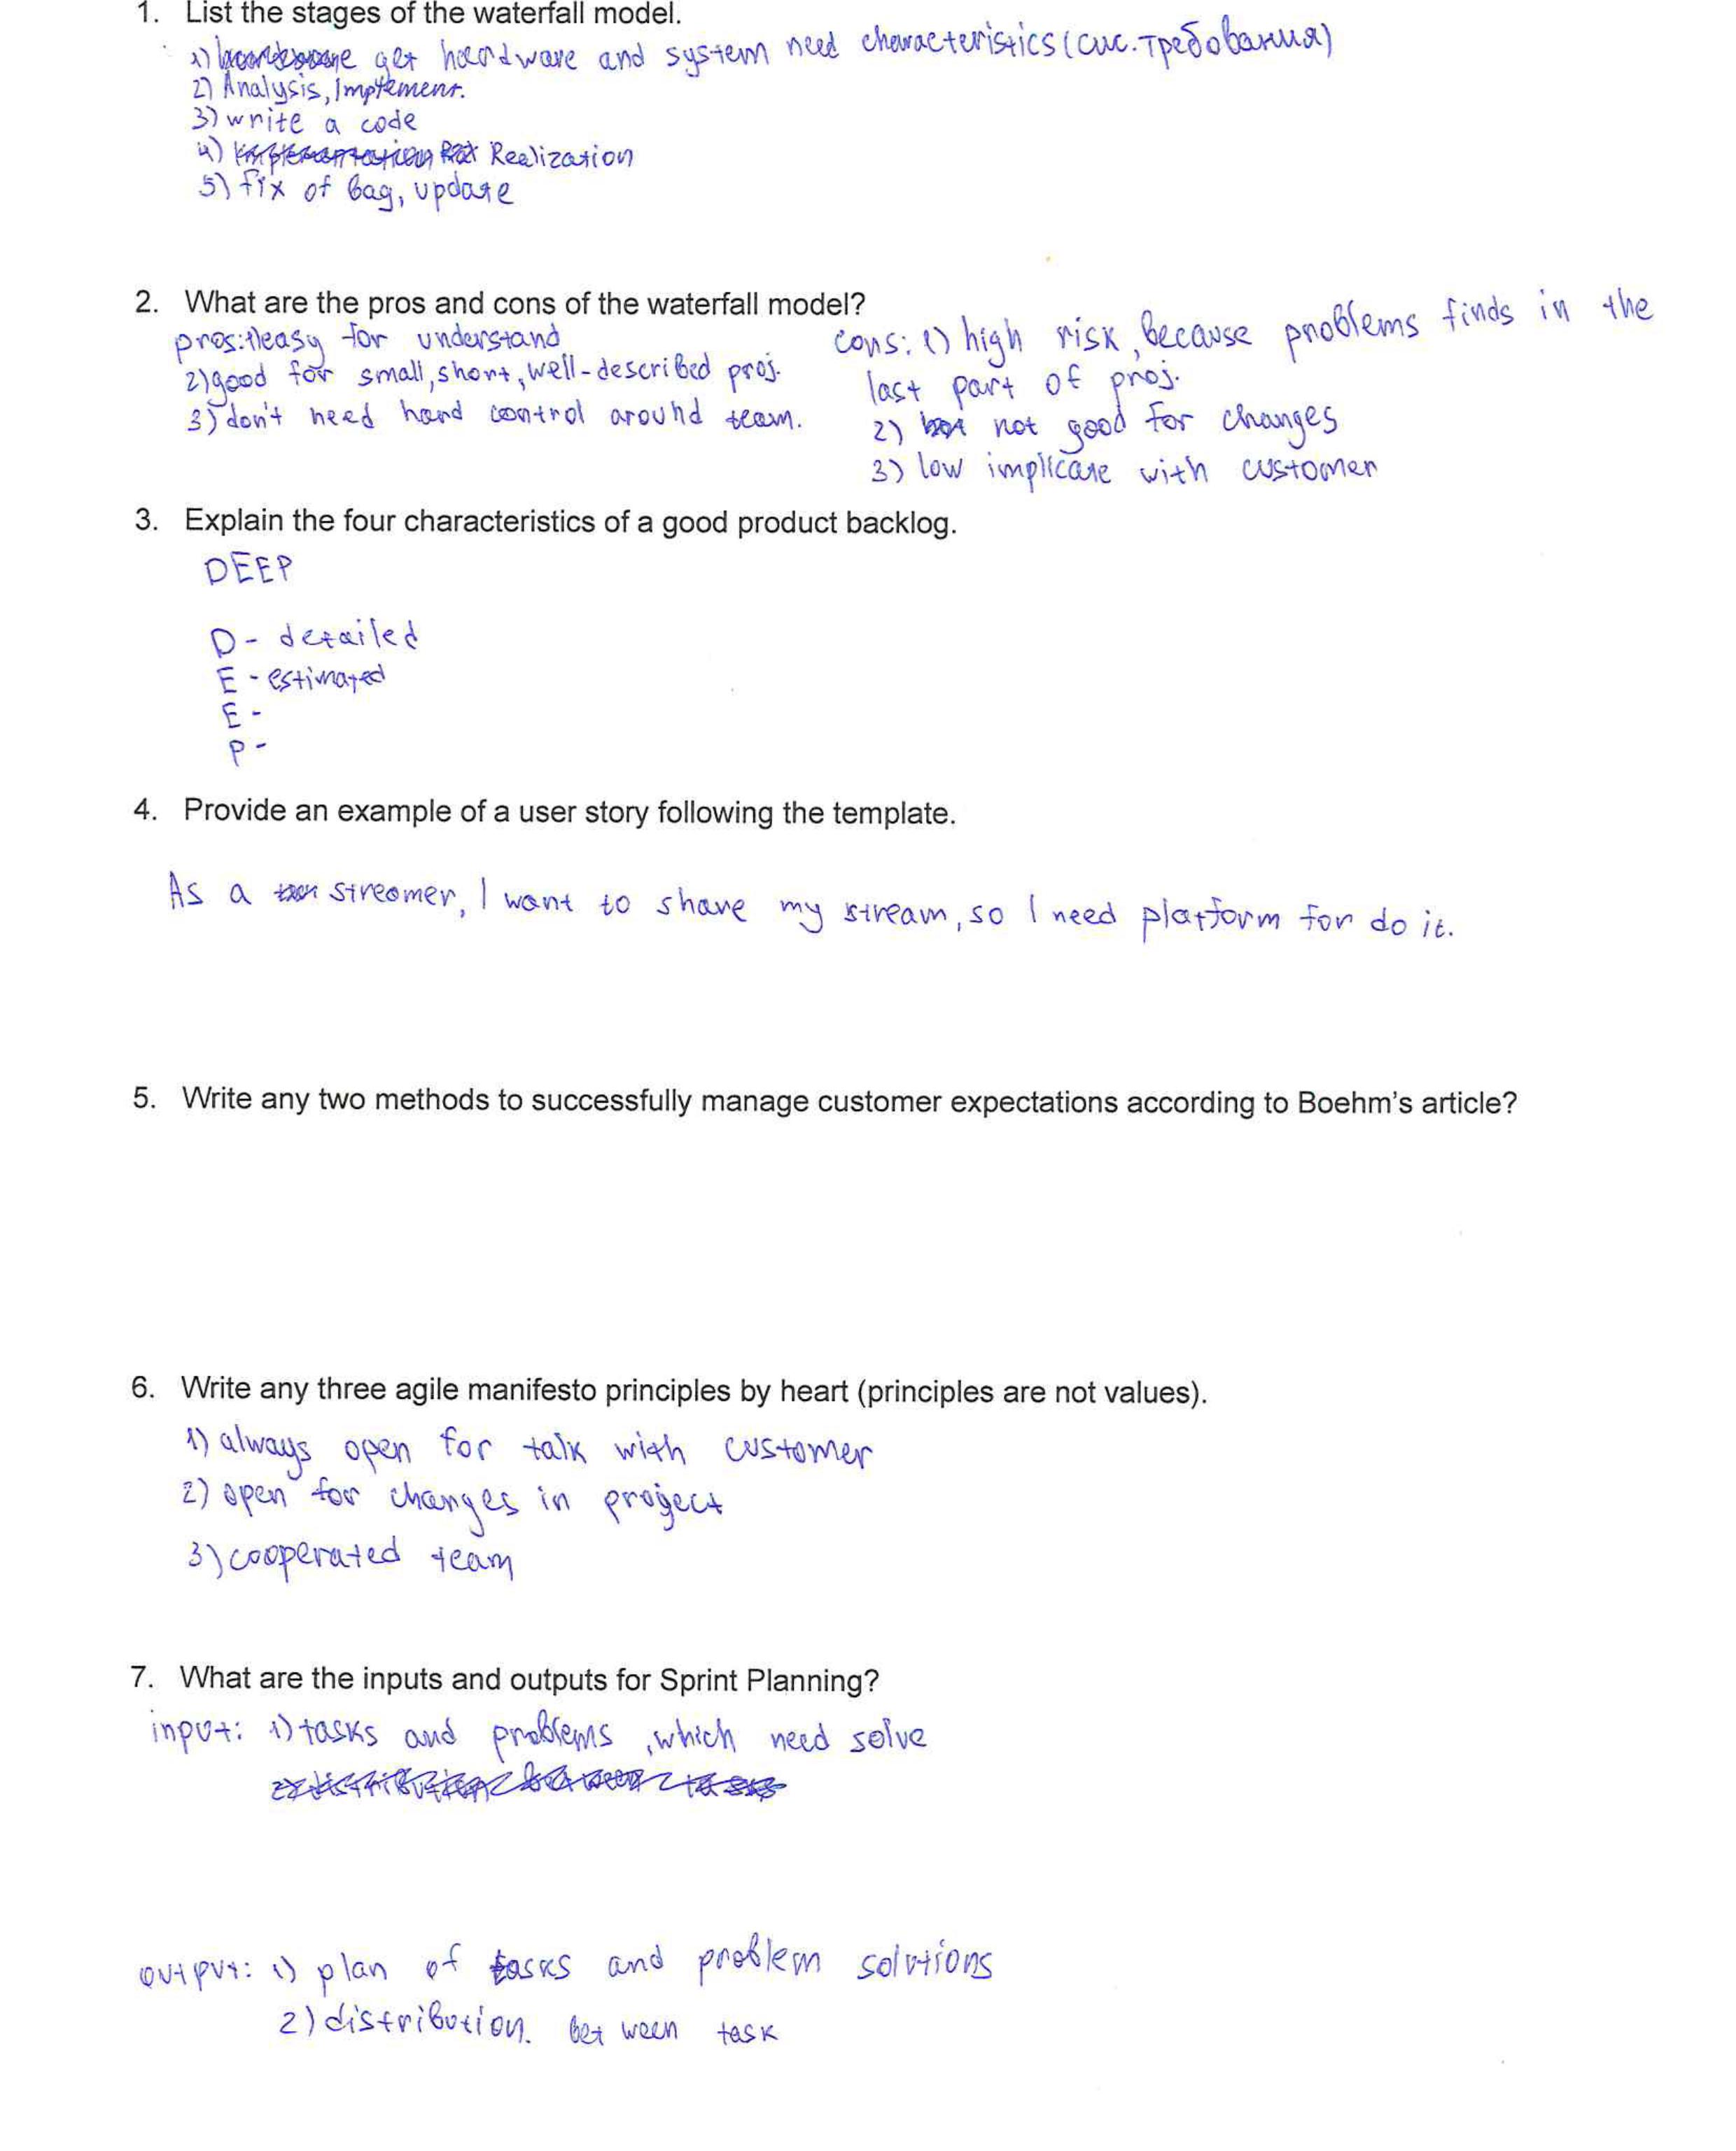 1. List the stages of the waterfall model.
1) get hardware and system need characteristics (сис. требования)
2) Analysis, Implement.
3) write a code
4) Realization
5) fix of bag, update
2. What are the pros and cons of the waterfall model?
pros: 1) easy for understand
2) good for small, short, well-described proj.
3) don't need hard control around team.
cons: 1) high risk, because problems finds in the
last part of proj.
2) not good for changes
3) low implicate with customer
3. Explain the four characteristics of a good product backlog.
DEEP
D - detailed
E - estimated
E -
P -
4. Provide an example of a user story following the template.
As a streamer, I want to share my stream, so I need platform for do it.
5. Write any two methods to successfully manage customer expectations according to Boehm's article?
6. Write any three agile manifesto principles by heart (principles are not values).
1) always open for talk with customer
2) open for changes in project
3) cooperated team
7. What are the inputs and outputs for Sprint Planning?
input: 1) tasks and problems, which need solve
output: 1) plan of tasks and problem solutions
2) distribution. between task